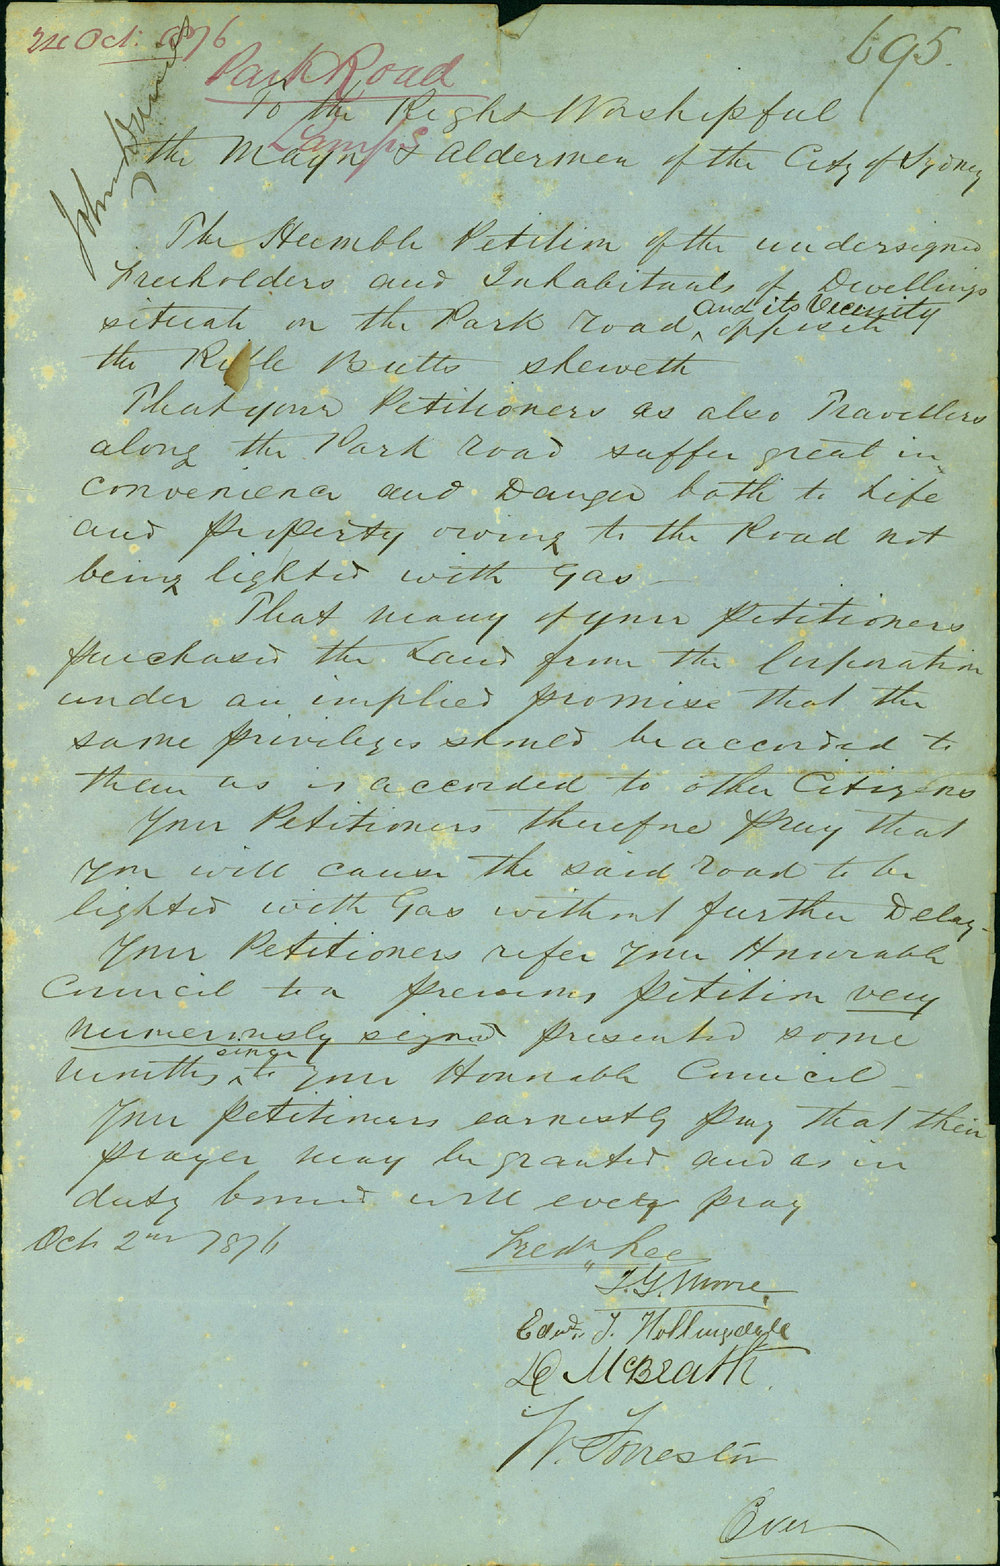 Oct. 1876
695.
Park Road
Lamps
To the Right Worshipful
the Mayor & Aldermen of the City of Sydney
The Humble Petition of the undersigned
Freeholders and Inhabitants of Dwellings
situate on the Park road ^ and its Vicinity opposite
the Rifle Butts sheweth
That your Petitioners as also Travellers
along the Park road suffer great in
convenience and Danger both to Life
and Property owing to the Road not
being lighted with Gas
That many of your petitioners
purchased the Land from the Corporation
under an implied promise that the
same privileges should be accorded to
them as is accorded to other Citizens
Your Petitioners therefore pray that
you will cause the said road to be
lighted with Gas without further Delay-
Your Petitioners refer your Honorable
Council to a previous petition very
numerously signed presented some
months ^ since to your Honorable Council -
Your petitioners earnestly pray that their
prayer may be granted and as in
duty bound will every pray
Oct 2nd 1876
Fredk Lee
T. G. Moore
Edwd. J. Hollingdale
McBrath
W. Forrester
Over